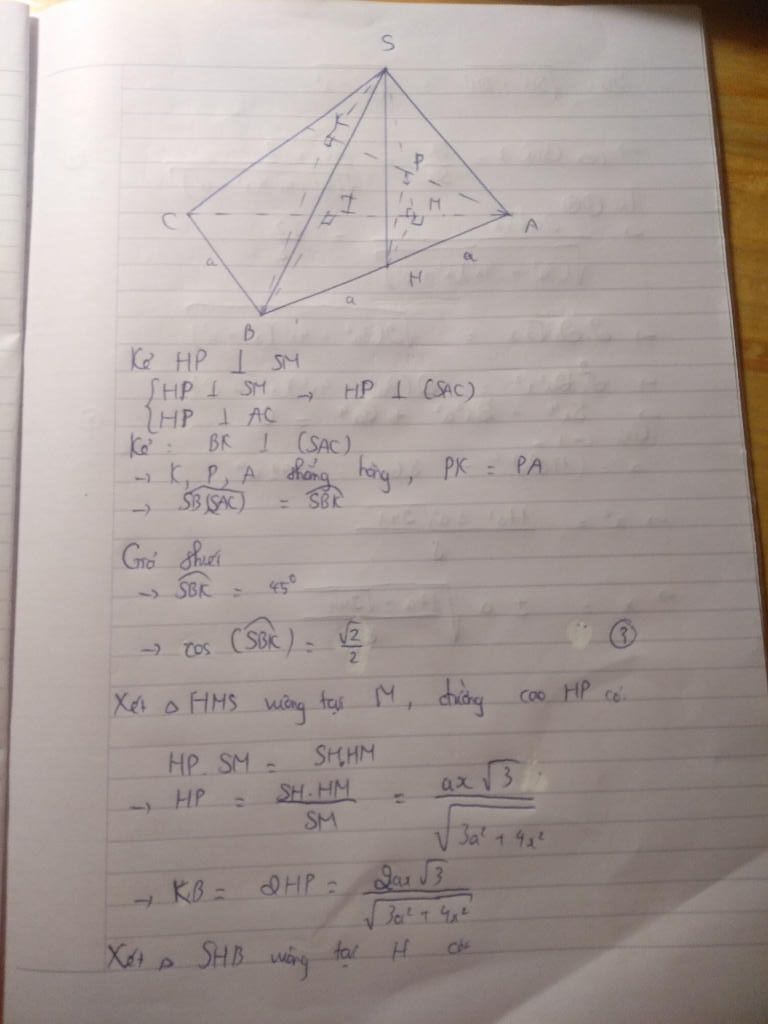 S
K
P
C
I
M
A
a
H
a
a
B
Kẻ HP ⊥ SM
{HP ⊥ SM → HP ⊥ (SAC)
{HP ⊥ AC
Kẻ: BK ⊥ (SAC)
→ K, P, A thẳng hàng, PK = PA
→ SB(SAC) = SBK
Giả thiết
→ SBK = 45°
→ cos (SBK) = √2/2 (3)
Xét Δ HMS vuông tại M, đường cao HP có
HP.SM = SH.HM
→ HP = SH.HM/SM = ax√3/√(3a² + 4x²)
→ KB = 2HP = 2ax√3/√(3a² + 4x²)
Xét Δ SHB vuông tại H có